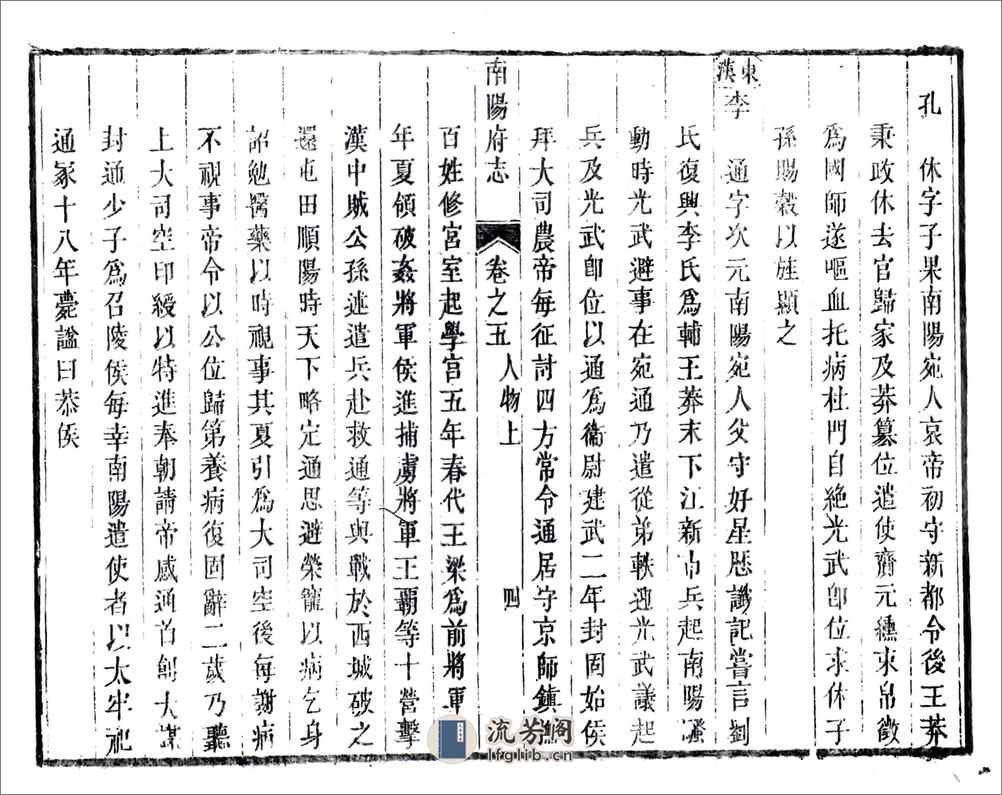 孔　休字子果南陽宛人哀帝初守新都令後王莽
秉政休去官歸家及莽篡位遣使齎元纁束帛徵
爲國師遂嘔血托病杜門自絶光武卽位求休子
孫賜穀以旌顯之
東漢
李　通字次元南陽宛人父守好星歷讖記嘗言劉
氏復興李氏爲輔王莽末下江新市兵起南陽騷
動時光武避事在宛通乃遣從弟軼迎光武議起
兵及光武卽位以通爲衞尉建武二年封固始侯
拜大司農帝每征討四方常令通居守京師鎮
南陽府志　卷之五　人物上　四
百姓修宮室起學官五年春代王梁爲前將軍
年夏領破姦將軍侯進捕虜將軍王霸等十營擊
漢中賊公孫述遣兵赴救通等與戰於西城破之
還屯田順陽時天下略定通思避榮寵以病乞身
詔勉醫藥以時視事其夏引爲大司空後每謝病
不視事帝令以公位歸第養病復固辭二歲乃聽
上大司空印綬以特進奉朝請帝感通首創大謀
封通少子爲召陵侯每幸南陽遣使者以太牢祀
通冢十八年薨謚曰恭侯
流芳閣
lfglib.cn